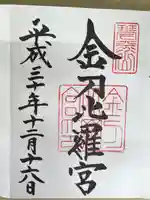 金刀比羅宮
平成三十年十二月十六日